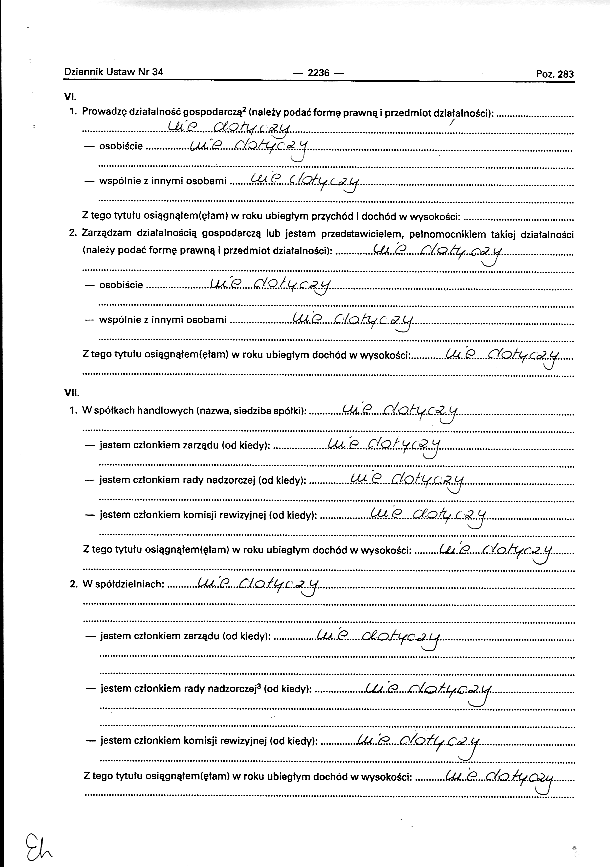 Dziennik Ustaw Nr 34 — 2236 — Poz. 283
VI.
1. Prowadzę działalność gospodarczą² (należy podać formę prawną i przedmiot działalności): ..........
nie dotyczy
— osobiście .......... nie dotyczy
— wspólnie z innymi osobami .......... nie dotyczy
Z tego tytułu osiągnąłem(ęłam) w roku ubiegłym przychód i dochód w wysokości: ..........
2. Zarządzam działalnością gospodarczą lub jestem przedstawicielem, pełnomocnikiem takiej działalności
(należy podać formę prawną i przedmiot działalności): .......... nie dotyczy
— osobiście .......... nie dotyczy
— wspólnie z innymi osobami .......... nie dotyczy
Z tego tytułu osiągnąłem(ęłam) w roku ubiegłym dochód w wysokości: .......... nie dotyczy
VII.
1. W spółkach handlowych (nazwa, siedziba spółki): .......... nie dotyczy
— jestem członkiem zarządu (od kiedy): .......... nie dotyczy
— jestem członkiem rady nadzorczej (od kiedy): .......... nie dotyczy
— jestem członkiem komisji rewizyjnej (od kiedy): .......... nie dotyczy
Z tego tytułu osiągnąłem(ęłam) w roku ubiegłym dochód w wysokości: .......... nie dotyczy
2. W spółdzielniach: .......... nie dotyczy
— jestem członkiem zarządu (od kiedy): .......... nie dotyczy
— jestem członkiem rady nadzorczej³ (od kiedy): .......... nie dotyczy
— jestem członkiem komisji rewizyjnej (od kiedy): .......... nie dotyczy
Z tego tytułu osiągnąłem(ęłam) w roku ubiegłym dochód w wysokości: .......... nie dotyczy